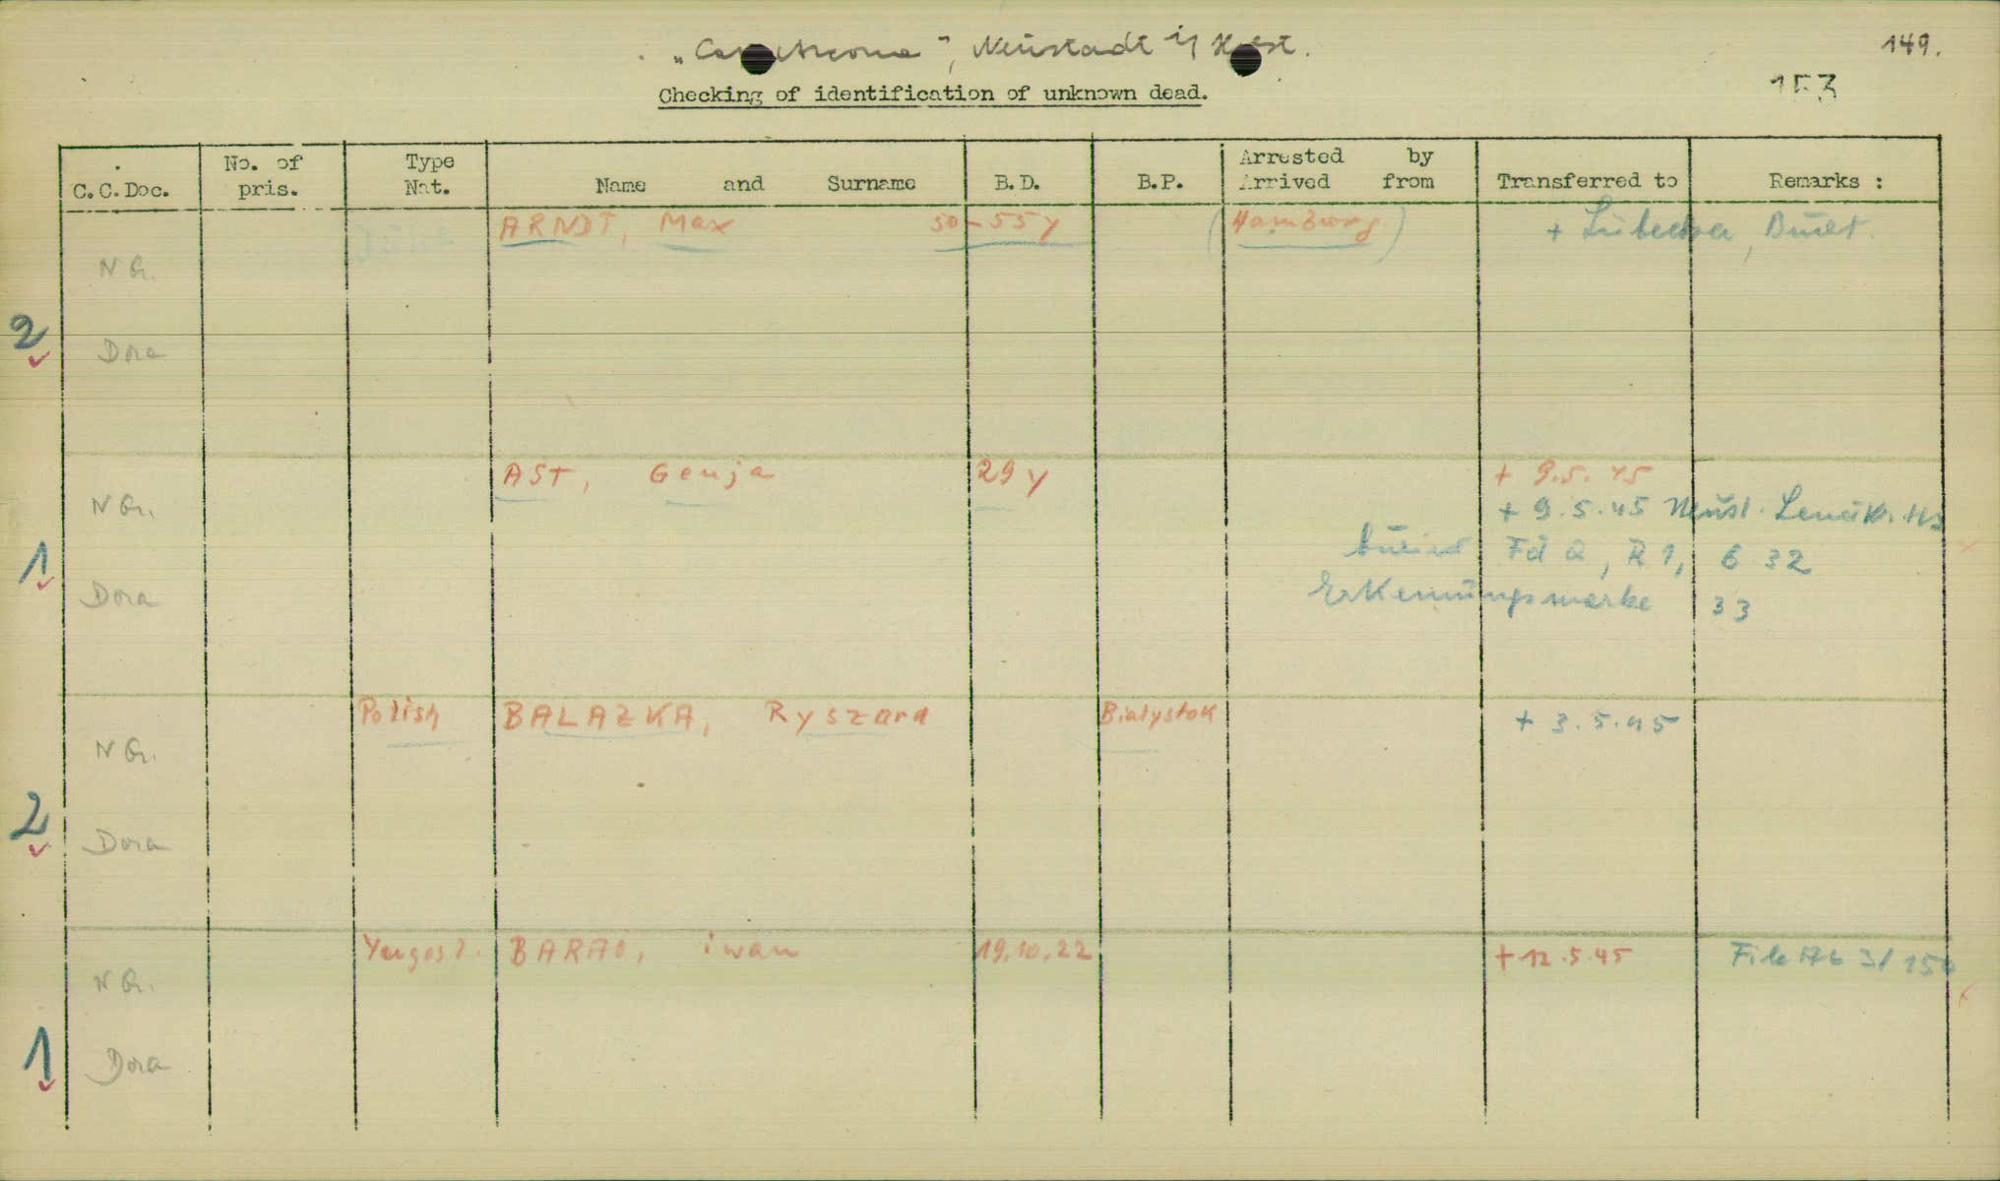 „Cap Arcona", Neustadt i/ Holst.
149.
153
Checking of identification of unknown dead.
C.C.Doc. No. of pris. Type Nat. Name and Surname B.D. B.P. Arrested by Arrived from Transferred to Remarks :
ARNDT, Max 50-55 y (Hamburg) + Lübecker Bucht.
N G.
2
Dora
AST, Genja 29 y + 9.5.45
N G. + 9.5.45 Neust.
buried Fd 2, R 1, G 32
1
Dora Erkennungsmarke 33
Polish BALAZKA, Ryszard Bialystok + 3.5.45
N G.
2
Dora
Yugosl. BARAC, iwan 19.10.22 + 12.5.45 File
N G.
1
Dora